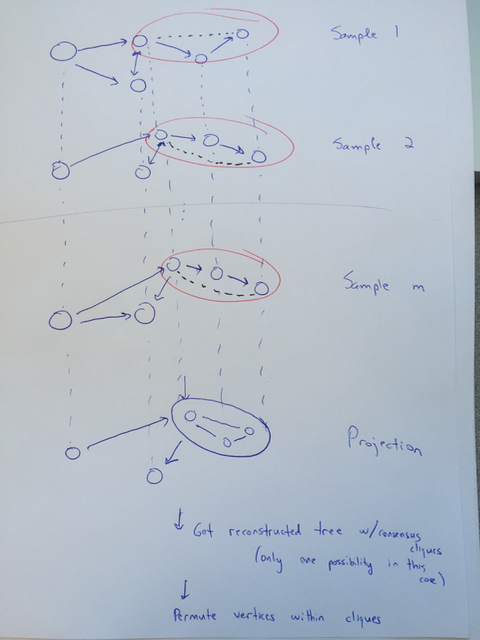 Sample 1
Sample 2
Sample m
Projection
Get reconstructed tree w/consensus
cliques
(only one possibility in this
case)
Permute vertices within cliques